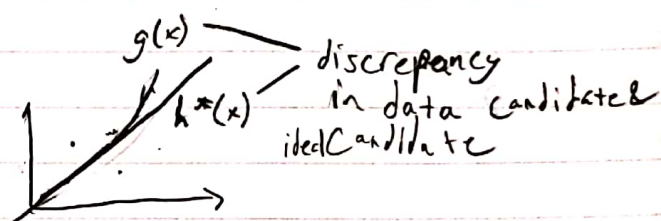 g(x)
discrepancy
h*(x)
in data candidate &
idealCandidate